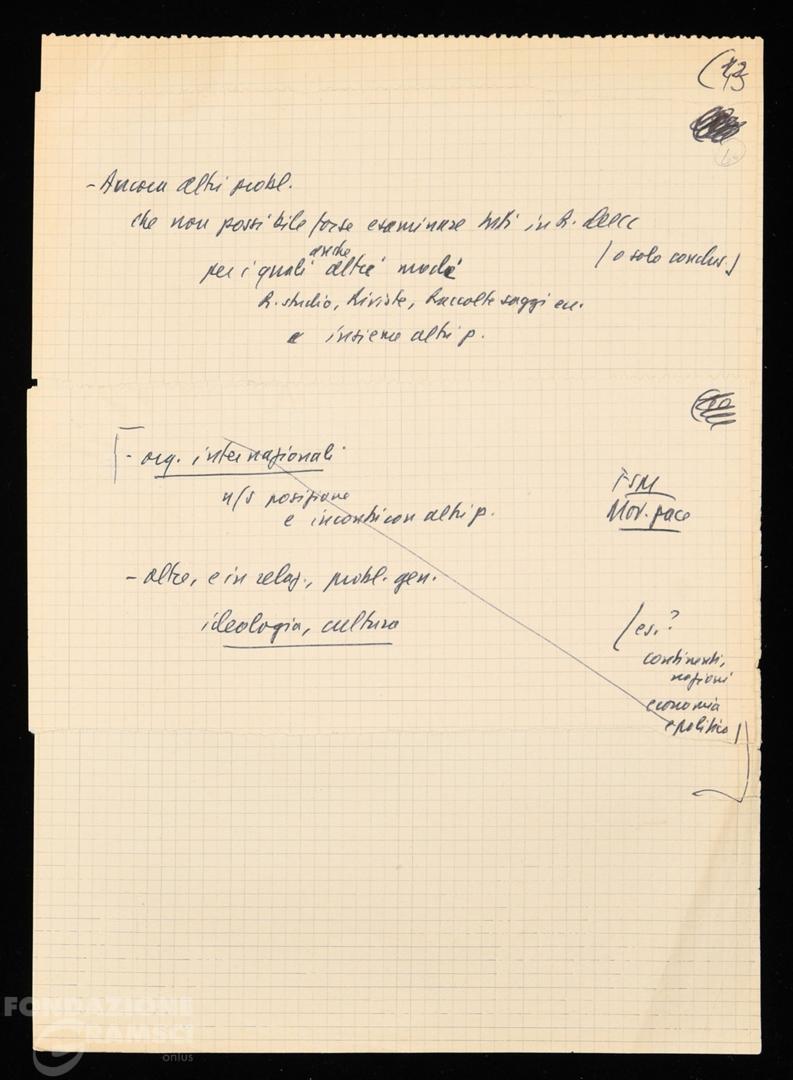 - Ancora altri probl.
che non possibile forse esaminare tutti in R.
(o solo conclus.)
anche
per i quali altri modi
R. studio, Riviste, Raccolte saggi ecc.
e insieme altri p.
- org. internazionali
n/s posizione
e incontri con altri p.
FSM
Mov. pace
- altre, e in relaz., probl. gen.
ideologia, cultura
(es. ?
continenti,
nazioni
economia
e politica)
FONDAZIONE
GRAMSCI
onlus